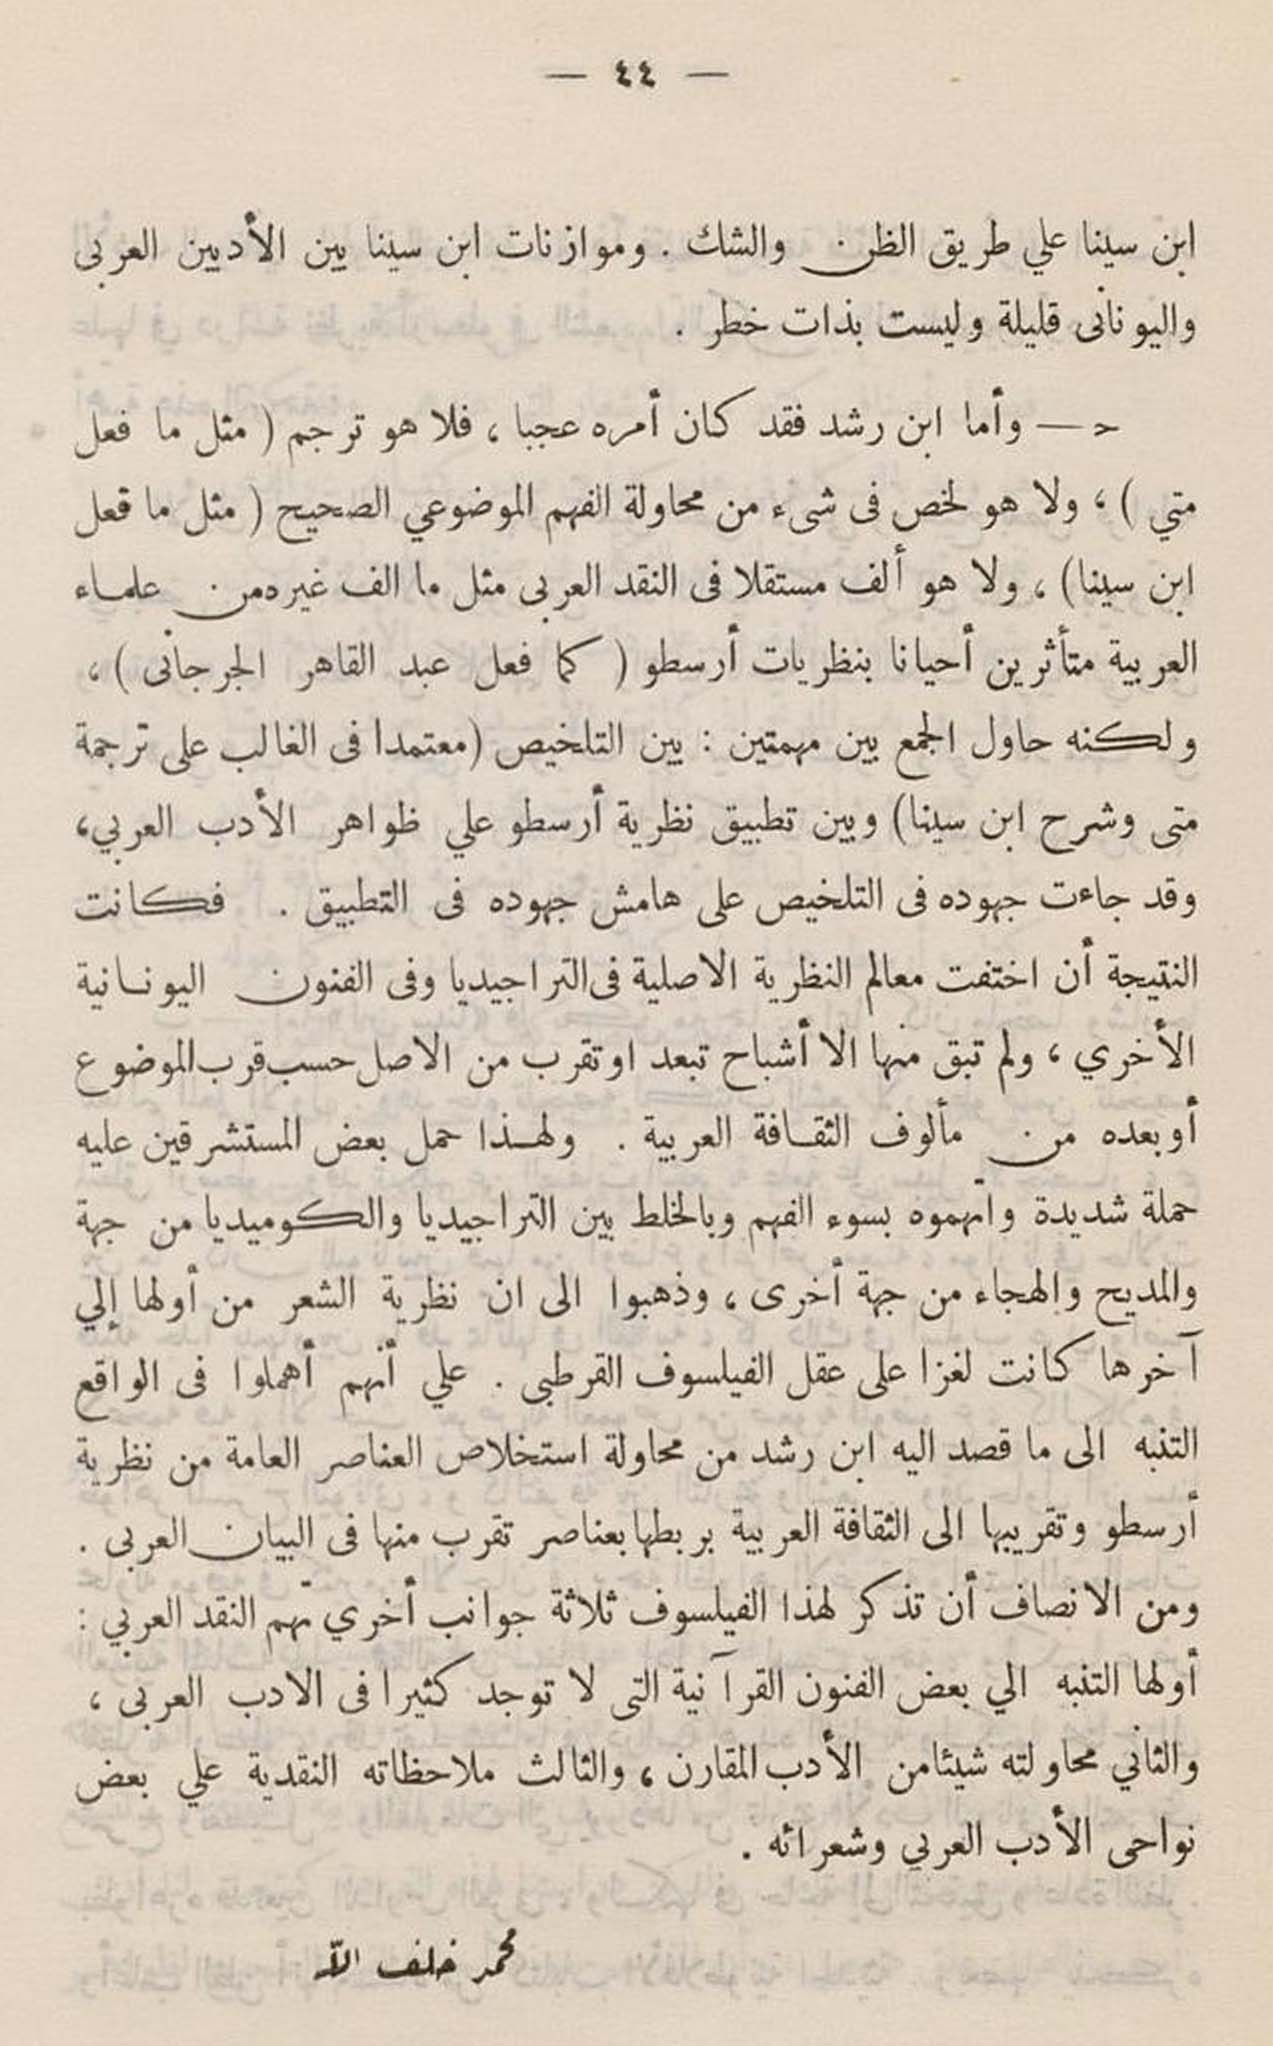 — ٤٤ —
ابن سينا علي طريق الظن والشك . وموازنات ابن سينا بين الأدبين العربى
واليونانى قليلة وليست بذات خطر .
حـ — وأما ابن رشد فقد كان أمره عجبا ، فلا هو ترجم ( مثل ما فعل
متي ) ، ولا هو لخص فى شىء من محاولة الفهم الموضوعي الصحيح ( مثل ما فعل
ابن سينا) ، ولا هو ألف مستقلا فى النقد العربى مثل ما الف غيره من علماء
العربية متأثرين أحيانا بنظريات أرسطو ( كما فعل عبد القاهر الجرجانى ) ،
ولكنه حاول الجمع بين مهمتين : بين التلخيص (معتمدا فى الغالب على ترجمة
متى وشرح ابن سينا) وبين تطبيق نظرية أرسطو علي ظواهر الأدب العربي،
وقد جاءت جهوده فى التلخيص على هامش جهوده فى التطبيق . فكانت
النتيجة أن اختفت معالم النظرية الاصلية فى التراجيديا وفى الفنون اليونانية
الأخري ، ولم تبق منها الا أشباح تبعد او تقرب من الاصل حسب قرب الموضوع
أو بعده من مألوف الثقافة العربية . ولهذا حمل بعض المستشرقين عليه
حملة شديدة واتهموه بسوء الفهم وبالخلط بين التراجيديا والكوميديا من جهة
والمديح والهجاء من جهة أخرى ، وذهبوا الى ان نظرية الشعر من أولها إلي
آخرها كانت لغزا على عقل الفيلسوف القرطبى . علي أنهم أهملوا فى الواقع
التنبه الى ما قصد اليه ابن رشد من محاولة استخلاص العناصر العامة من نظرية
أرسطو وتقريبها الى الثقافة العربية بربطها بعناصر تقرب منها فى البيان العربى .
ومن الانصاف أن تذكر لهذا الفيلسوف ثلاثة جوانب أخري تهم النقد العربي :
أولها التنبه الي بعض الفنون القرآنية التى لا توجد كثيرا فى الادب العربى ،
والثاني محاولته شيئا من الأدب المقارن ، والثالث ملاحظاته النقدية علي بعض
نواحى الأدب العربي وشعرائه .
محمد خلف الله